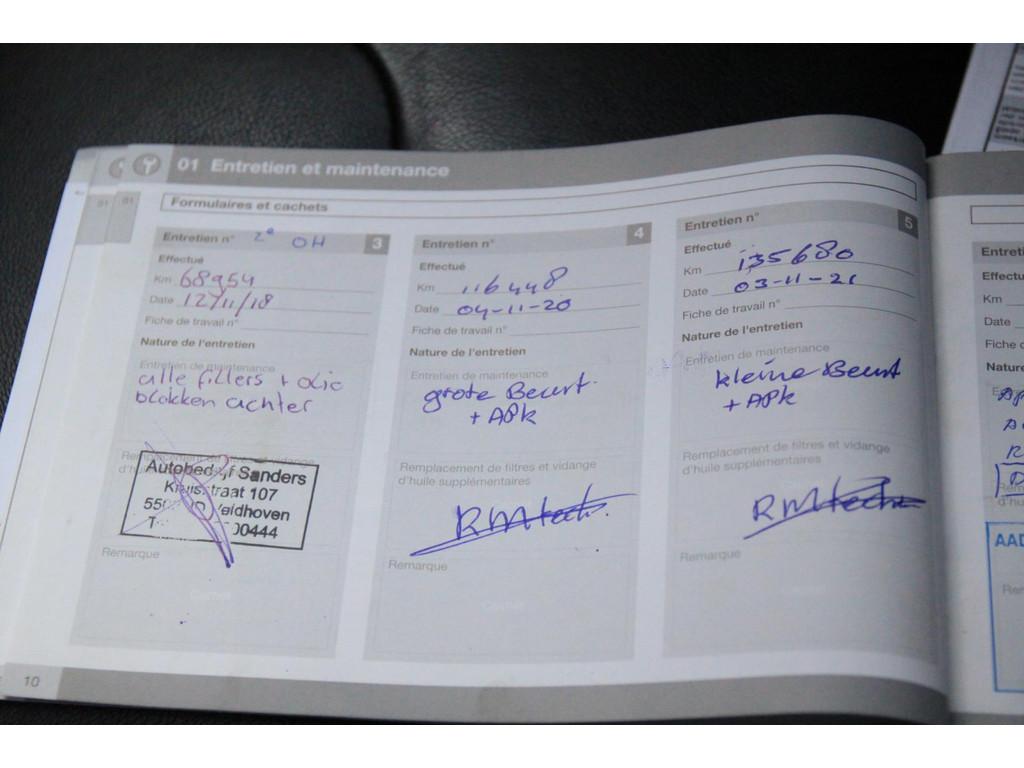 01 Entretien et maintenance
Formulaires et cachets
Entretien n° 2e OH 3
Effectué
Km 68954
Date 12/11/18
Fiche de travail n°
Nature de l'entretien
Entretien de maintenance
alle filters + olie
blokken achter
Autobedrijf Sanders
traat 107
Veldhoven
00444
Remarque
Cachet
10
Entretien n° 4
Effectué
Km 116448
Date 04-11-20
Fiche de travail n°
Nature de l'entretien
Entretien de maintenance
grote Beurt
+ APk
Remplacement de filtres et vidange
d'huile supplémentaires
RMtech
Remarque
Cachet
Entretien n° 5
Effectué
Km 135680
Date 03-11-21
Fiche de travail n°
Nature de l'entretien
Entretien de maintenance
kleine Beurt
+ APk
Remplacement de filtres et vidange
d'huile supplémentaires
RMtech
Remarque
Entreti
Effectu
Km
Date
Fiche
Nature
AAD